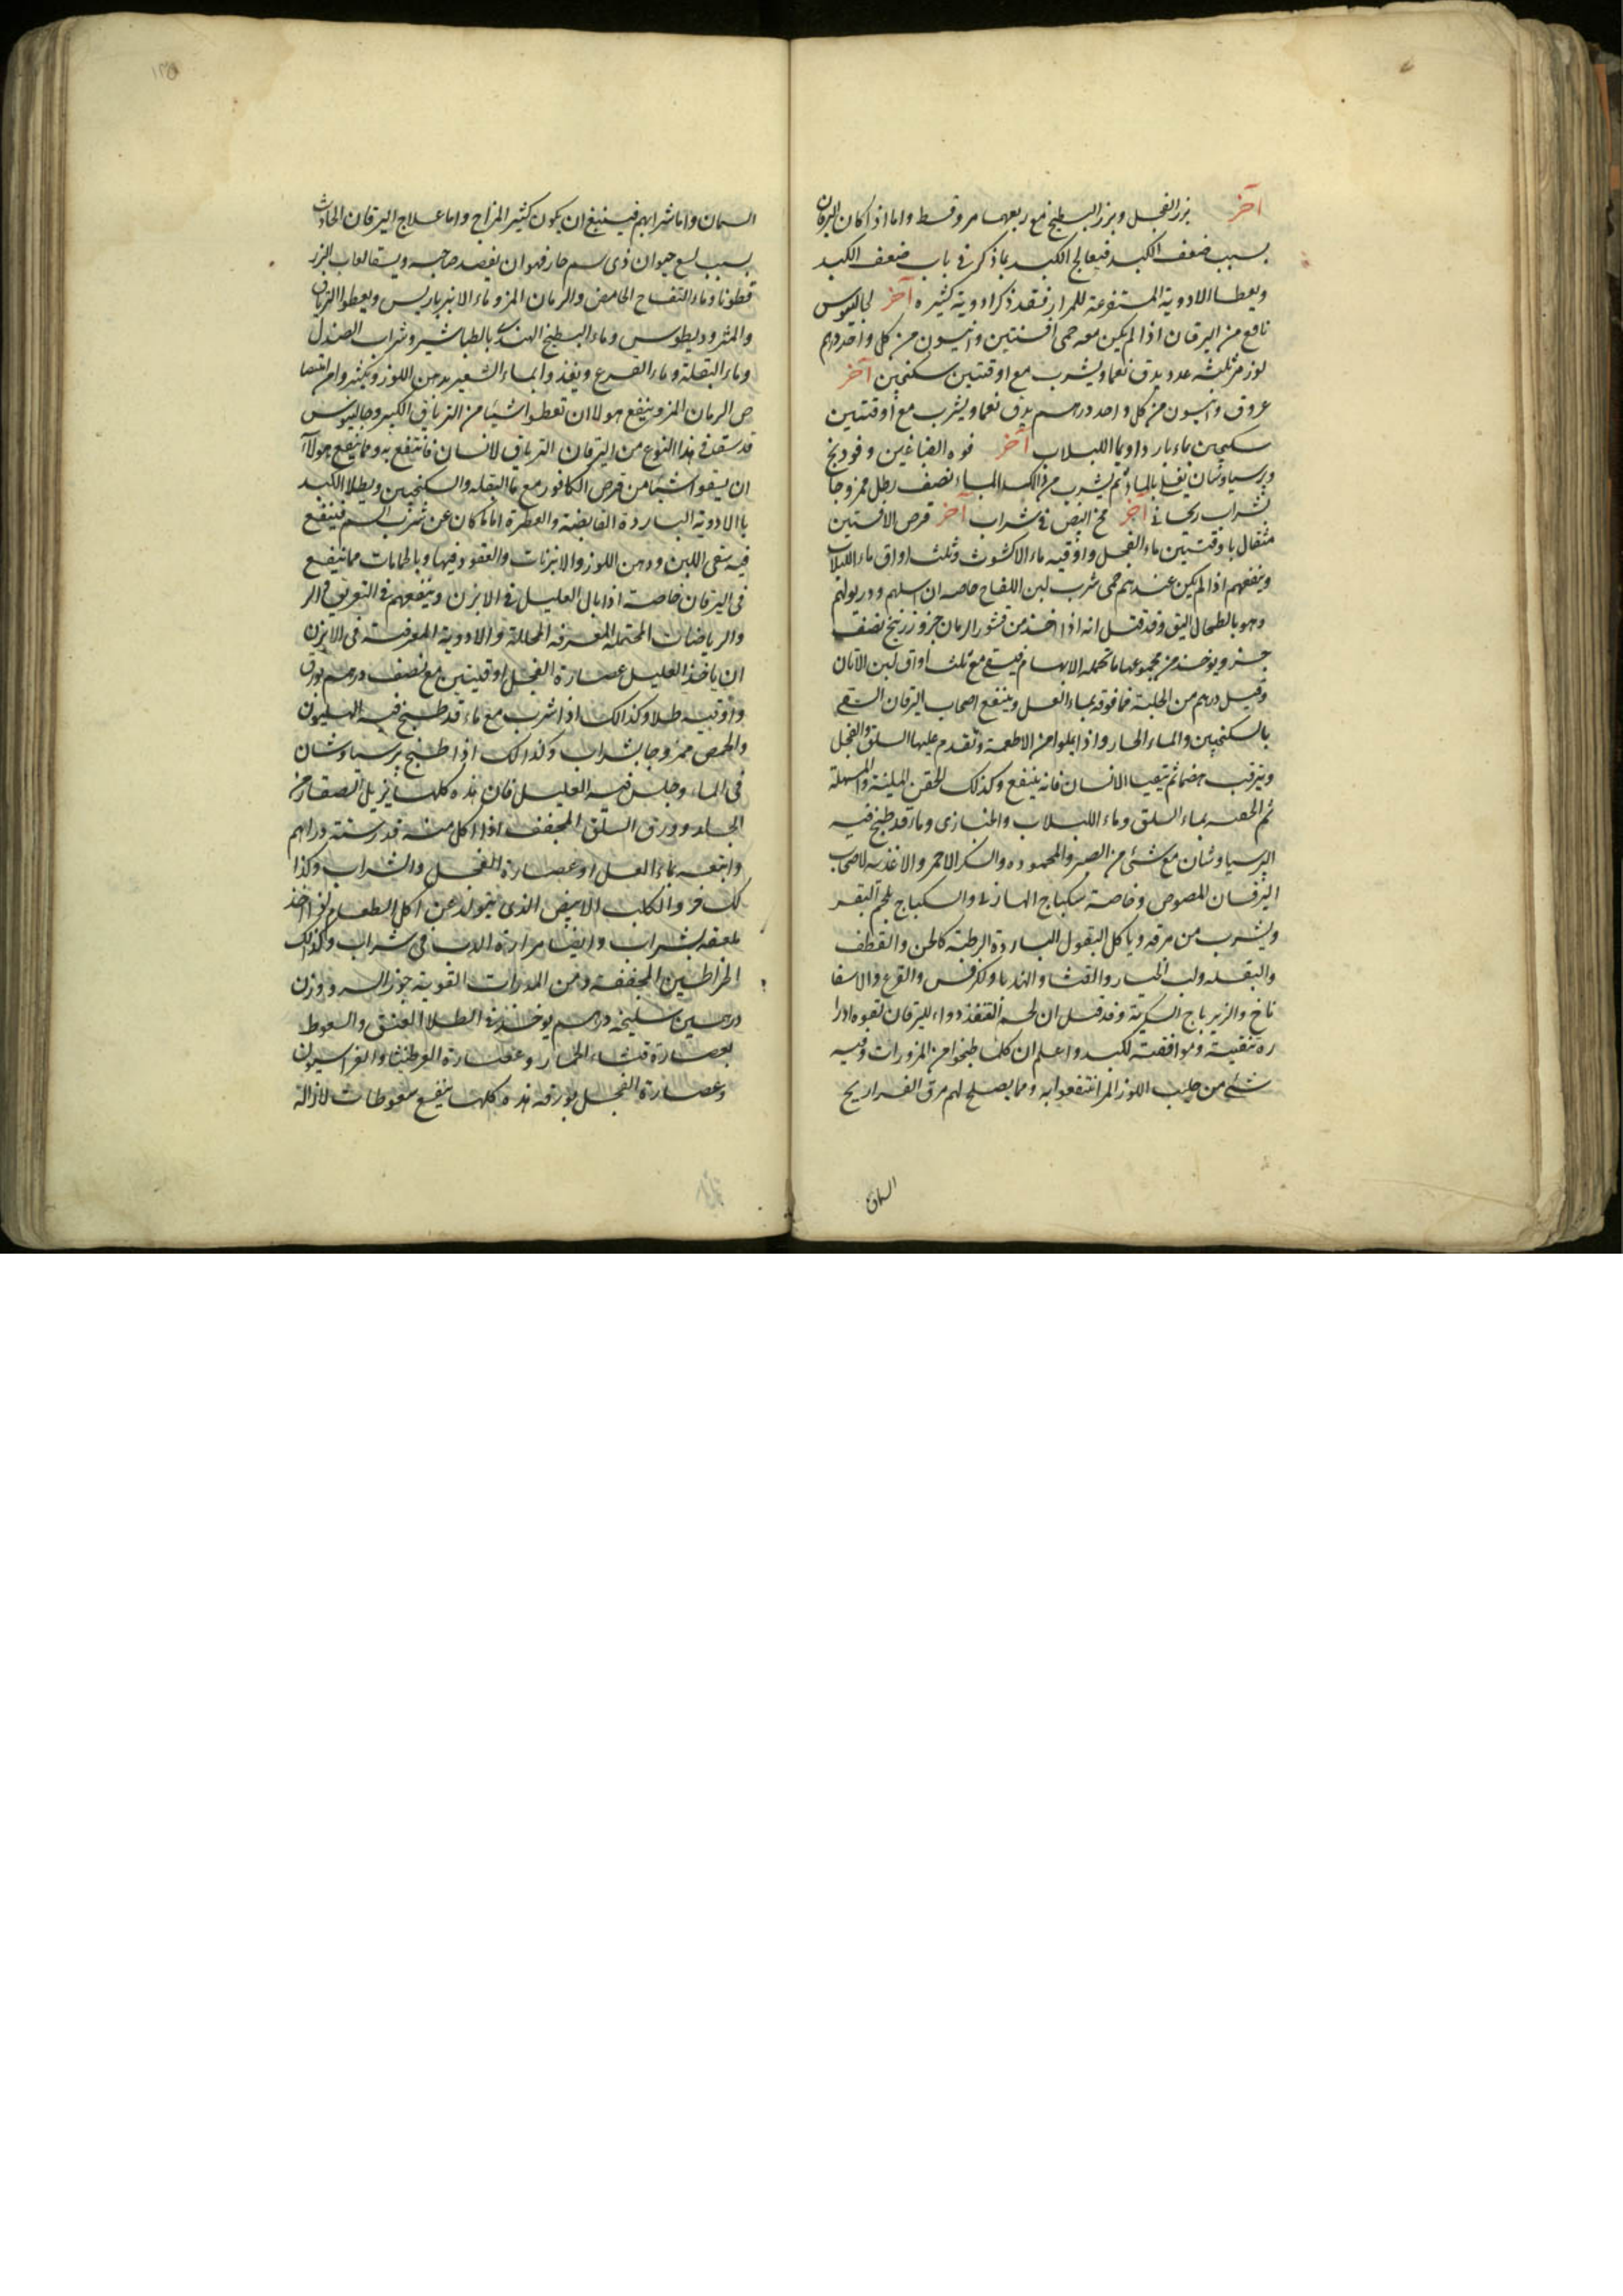 آخر بزر الفجل وبزر البطيخ مع ربعهما مر وقسط واما اذا كان اليرقان
بسبب ضعف الكبد فيعالج الكبد بما ذكر في باب ضعف الكبد
ويعطا الادوية المستفرغة للمرار فقد ذكر ادوية كثيره آخر لجالينوس
نافع من اليرقان اذا لم يكن معه حمى افسنتين وانيسون من كل واحد درهم
لوز مر ثلثه عدد يدق نعما ويشرب مع اوقتين سكنجبين آخر
عروق وانيسون من كل واحد درهم يدق نعما ويشرب مع اوقتين
سكنجبين بماء بارد او بما اللبلاب آخر فوه الصباغين وفودنج
وبرسياوشان يغلى بالماء ثم يشرب من ذالك الماء نصف رطل ممزوجا
بشراب ريحاني آخر مخ البيض في شراب آخر قرص الافسنتين
مثقال باوقتين ماء الفجل واوقيه ماء الاكشوث وثلث اواق ماء اللبلاب
وينفعهم اذا لم يكن عندهم حمى شرب لبن اللقاح خاصه ان اسهلهم ودر بولهم
وهو بالطحال اليق وقد قيل انه اذا اخذ من قشور الرمان جزو زرنيخ نصف
جزو ويوخذ من مجموعها ما تحمله الابهام فيسقى مع ثلث اواق لبن الاتان
وقيل درهم من الحلبة فما فوقه بماء العسل وينتفع اصحاب اليرقان القى
بالسكنجبين والماء الحار واذا بلوا من الاطعمة وتقدم عليها السلق والفجل
ويترقب هضما ثم يتقيا الانسان فانه ينتفع وكذلك الحقن اللينة والمسهلة
ثم الحقنه بماء السلق وماء اللبلاب والخبازى وماء قد طبخ فيه
البرسياوشان مع شئ من الصبر والمحموده والسكر الاحمر والاغذيه لاصحاب
اليرقان المصوص وخاصة سكباج الهازبى والسكباج بلحم البقر
ويشرب من مرقه وياكل البقول الباردة الرطبة كالخس والقطف
والبقله ولب الخيار والقثا والهندبا والكرفس والقرع والاسفا
ناخ والزيرباج السكرية وقد قيل ان لحم القنفذ دواء لليرقان لقوه ادرا
ره تنقية وموافقته لكبد واعلم ان كلما طبخوا من المزورات وفيه
شئ من حليب اللوز المر انتفعوا به ومما يصلح لهم مرق الفراريج
السمان
السمان واما شرابهم فينبغي ان يكون كثير المزاج واما علاج اليرقان الحادث
بسبب لسع حيوان ذى سم حار فهو ان يفصد صاحبه ويسقا لعاب البزر
قطونا وماء التفاح الحامض والرمان المز وماء الانبرباريس ويعطوا الترياق
والمثروديطوس وماء البطيخ الهندى بالطباشير وشراب الصندل
وماء البقلة وماء القرع ويغذوا بماء الشعير بدهن اللوز ويكثروا من امتصا
ص الرمان المز وينفع هولاان تعطوا شيئا من الترياق الكبير وجالينوس
قد سقى في هذا النوع من اليرقان الترياق لانسان فانتفع به ومما ينفع هولاآ
ان يسقوا شيئا من قرص الكافور مع ما البقله والسكنجبين ويطلا الكبد
باالادوية الباردة القابضة والعطرة اما ما كان عن شرب السم فينفع
فيه سقى اللبن ودهن اللوز والابزنات والقعود فيها وبالحمامات مما تنفع
في اليرقان خاصة اذا بال العليل في الابزن وينفعهم في التعريق فى الر
والرياضات المحتمله المعرفه المحللة والادوية المعرقة في الابزن
ان ياخذ العليل عصارة الفجل اوقيتين مع نصف درهم بورق
واوقيه طلا وكذالك اذا شرب مع ماء قد طبخ فيه الهليون
والحمص ممزوجا بشراب وكذالك اذا طبخ برسياوشان
في الماء وجلس فيه العليل فان هذه كلها يزيل الصفار من
الجلد وورق السلق المجفف اذا اكل منه قدر ستة دراهم
واتبعه بماء العسل او عصارة الفجل والشراب وكذا
لك خرو الكلب الابيض الذى يتولد عن اكل العظام لو اخذ
ملعقه بشراب وايضا مرارة الدب في شراب وكذالك
الخراطين المجففه ومن المدرات القوية جوز السرو وزن
درهمين سليخه درهم يوخذ في الطلا العتق والسعوط
بعصارة قثاء الحمار وعصارة العرطنيثا والفراسيون
وعصارة الفجل بورقه هذه كلها ينفع سعوطات لازالة